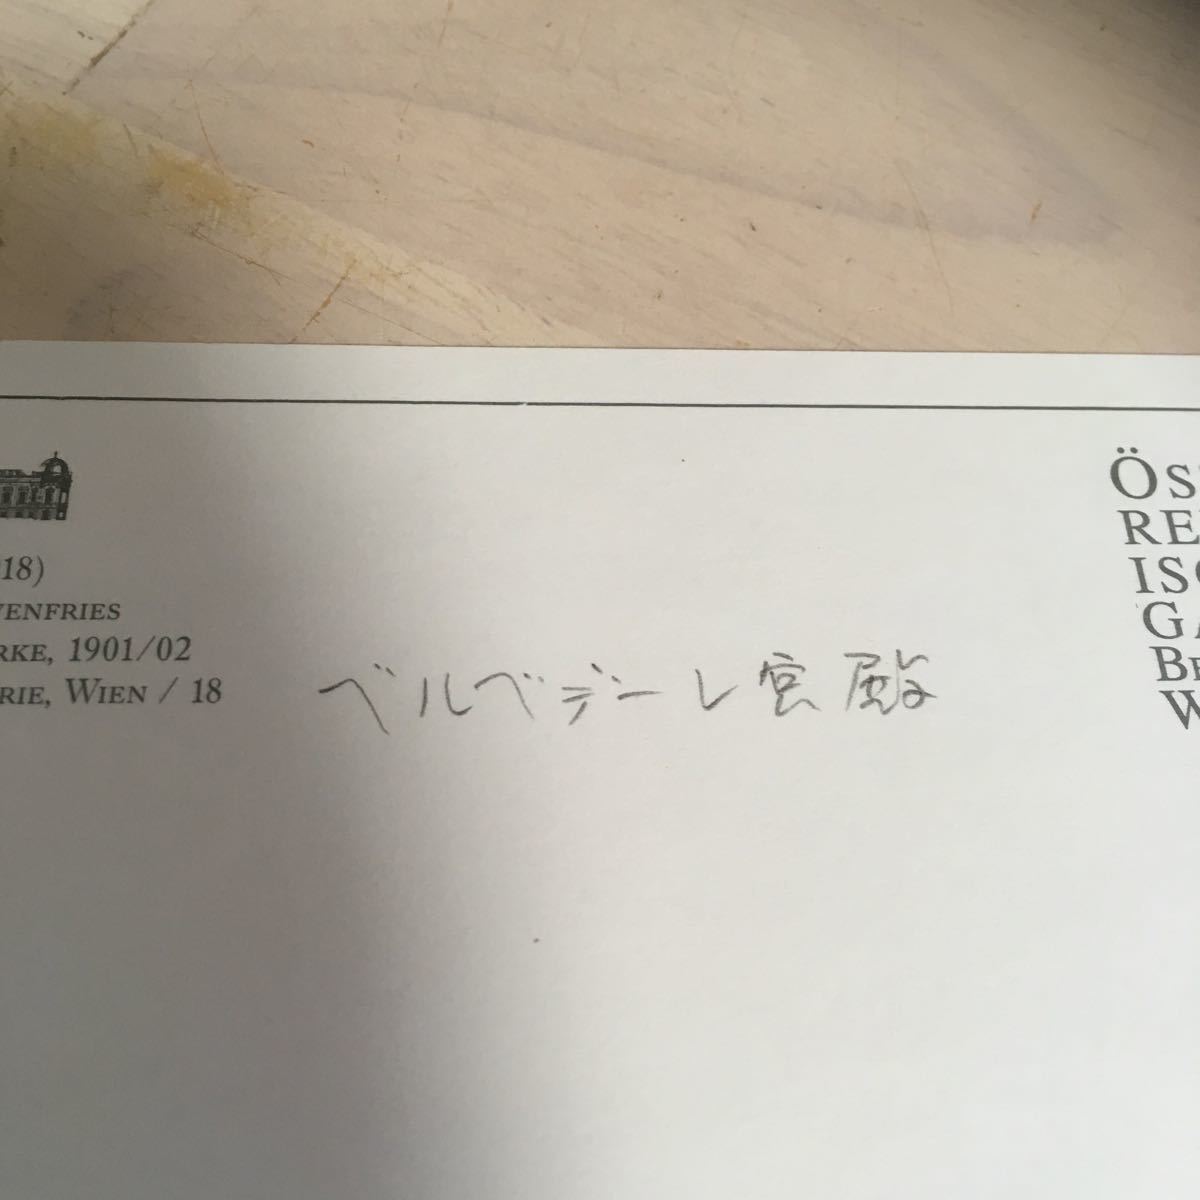 18)
VENFRIES
RKE, 1901/02
RIE, WIEN / 18
ベルベデーレ宮殿
ÖS
RE
ISC
GA
BE
W